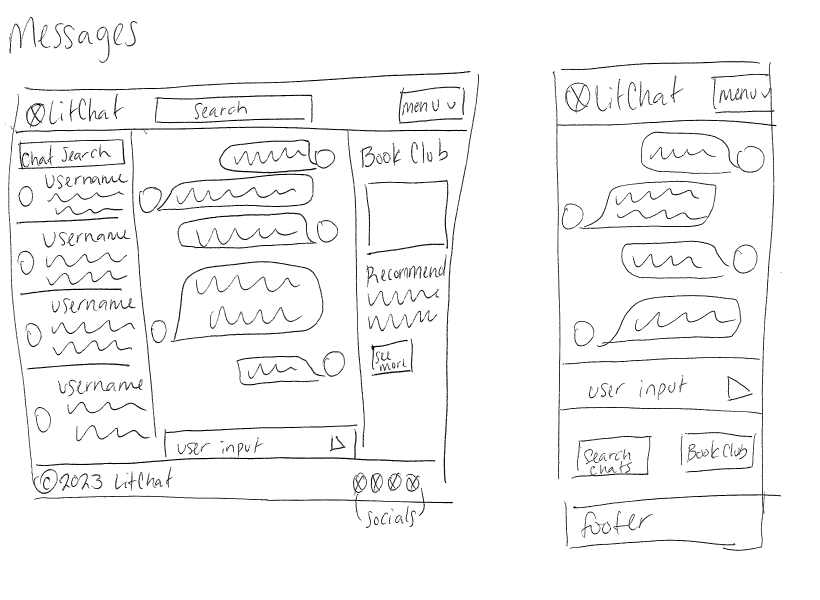 Messages
LitChat
Search
menu
Chat Search
Username
Username
Username
Username
Book Club
Recommend
See
more
user input
©2023 LitChat
Socials
LitChat
menu
user input
Search
chats
Book Club
footer